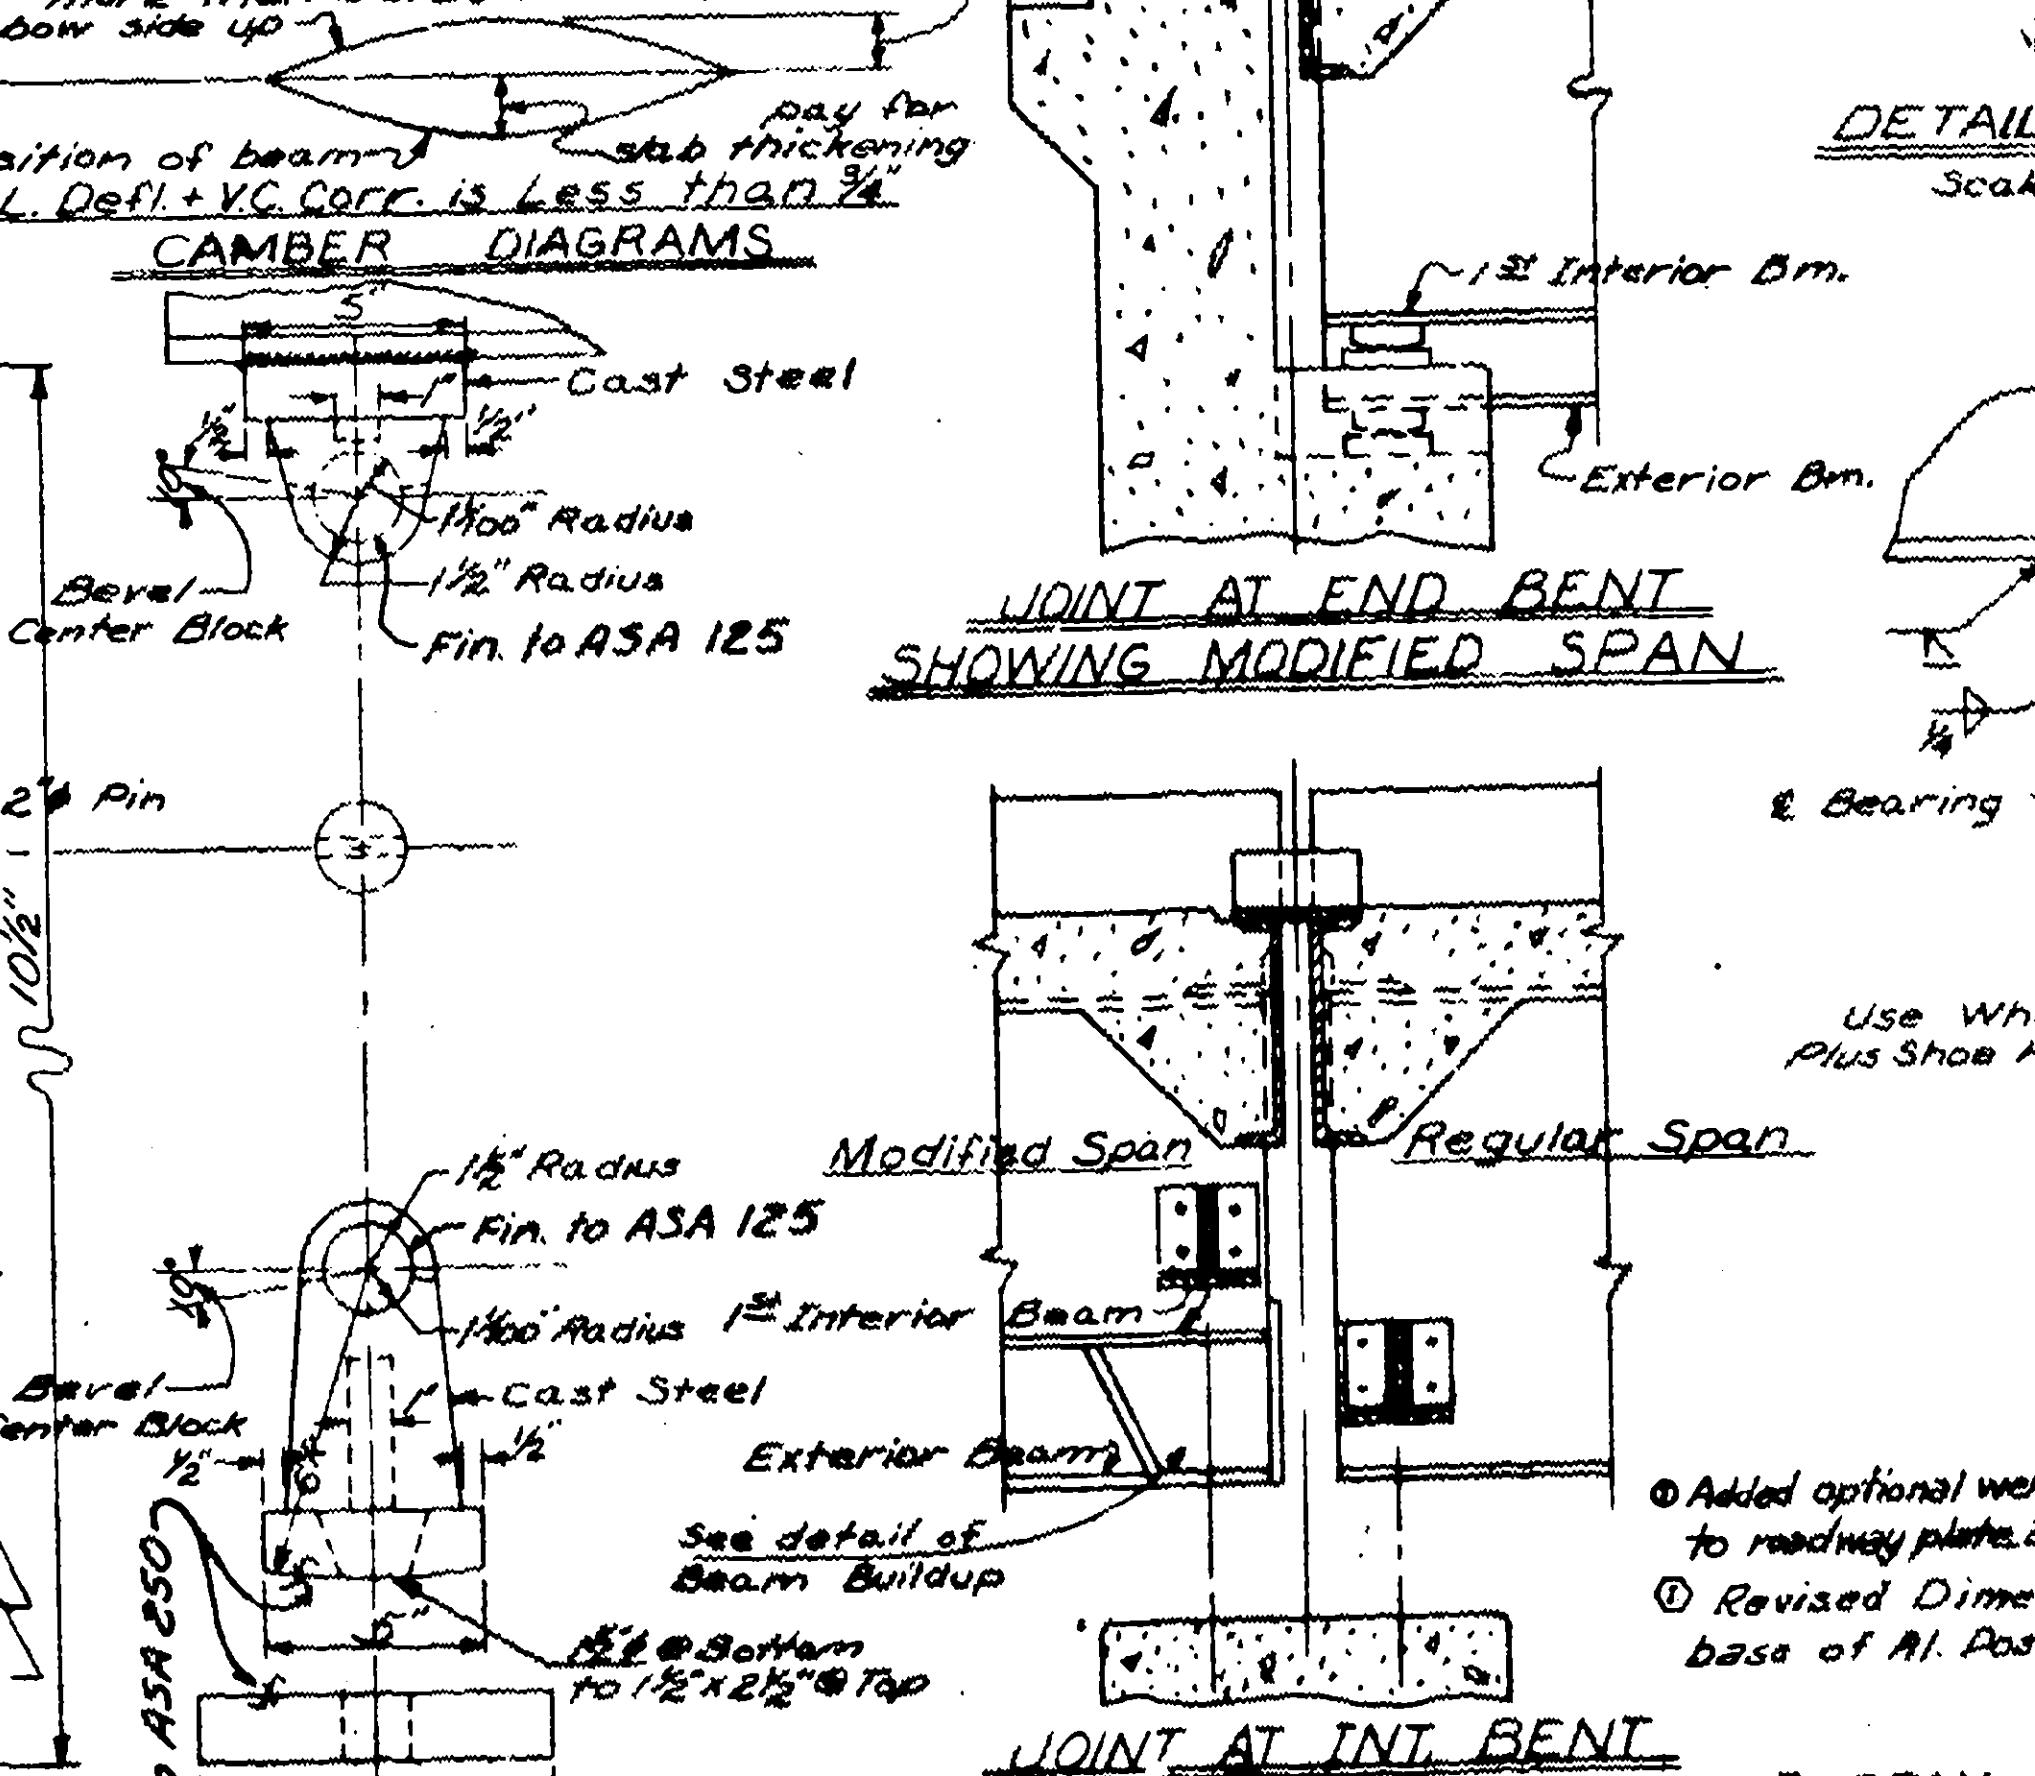 bow side up
pay for
slab thickening
sition of beam
L. Defl. + V.C. Corr. is Less than 3/4"
CAMBER DIAGRAMS
5"
1"
Cast Steel
1/2"
1/2"
10°
1 1/100" Radius
1 1/2" Radius
Bevel
Center Block
Fin. to ASA 125
2"ϕ Pin
10 1/2"
1 1/2" Radius
Fin. to ASA 125
10°
1 1/100" Radius
Bevel
Center Block
1"
Cast Steel
1/2"
1/2"
ASA 250
5"
1 1/2"ϕ @ Bottom
to 1 1/2" x 2 1/2" @ Top
1st Interior Bm.
Exterior Bm.
JOINT AT END BENT
SHOWING MODIFIED SPAN
Modified Span
Regular Span
1st Interior Beam
Exterior Beam
See detail of
Beam Buildup
JOINT AT INT. BENT
DETAIL
Scal
1/4
℄ Bearing
Use Wh
Plus Shoe
① Added optional wel
to roadway plate
① Revised Dime
base of Al. Pos